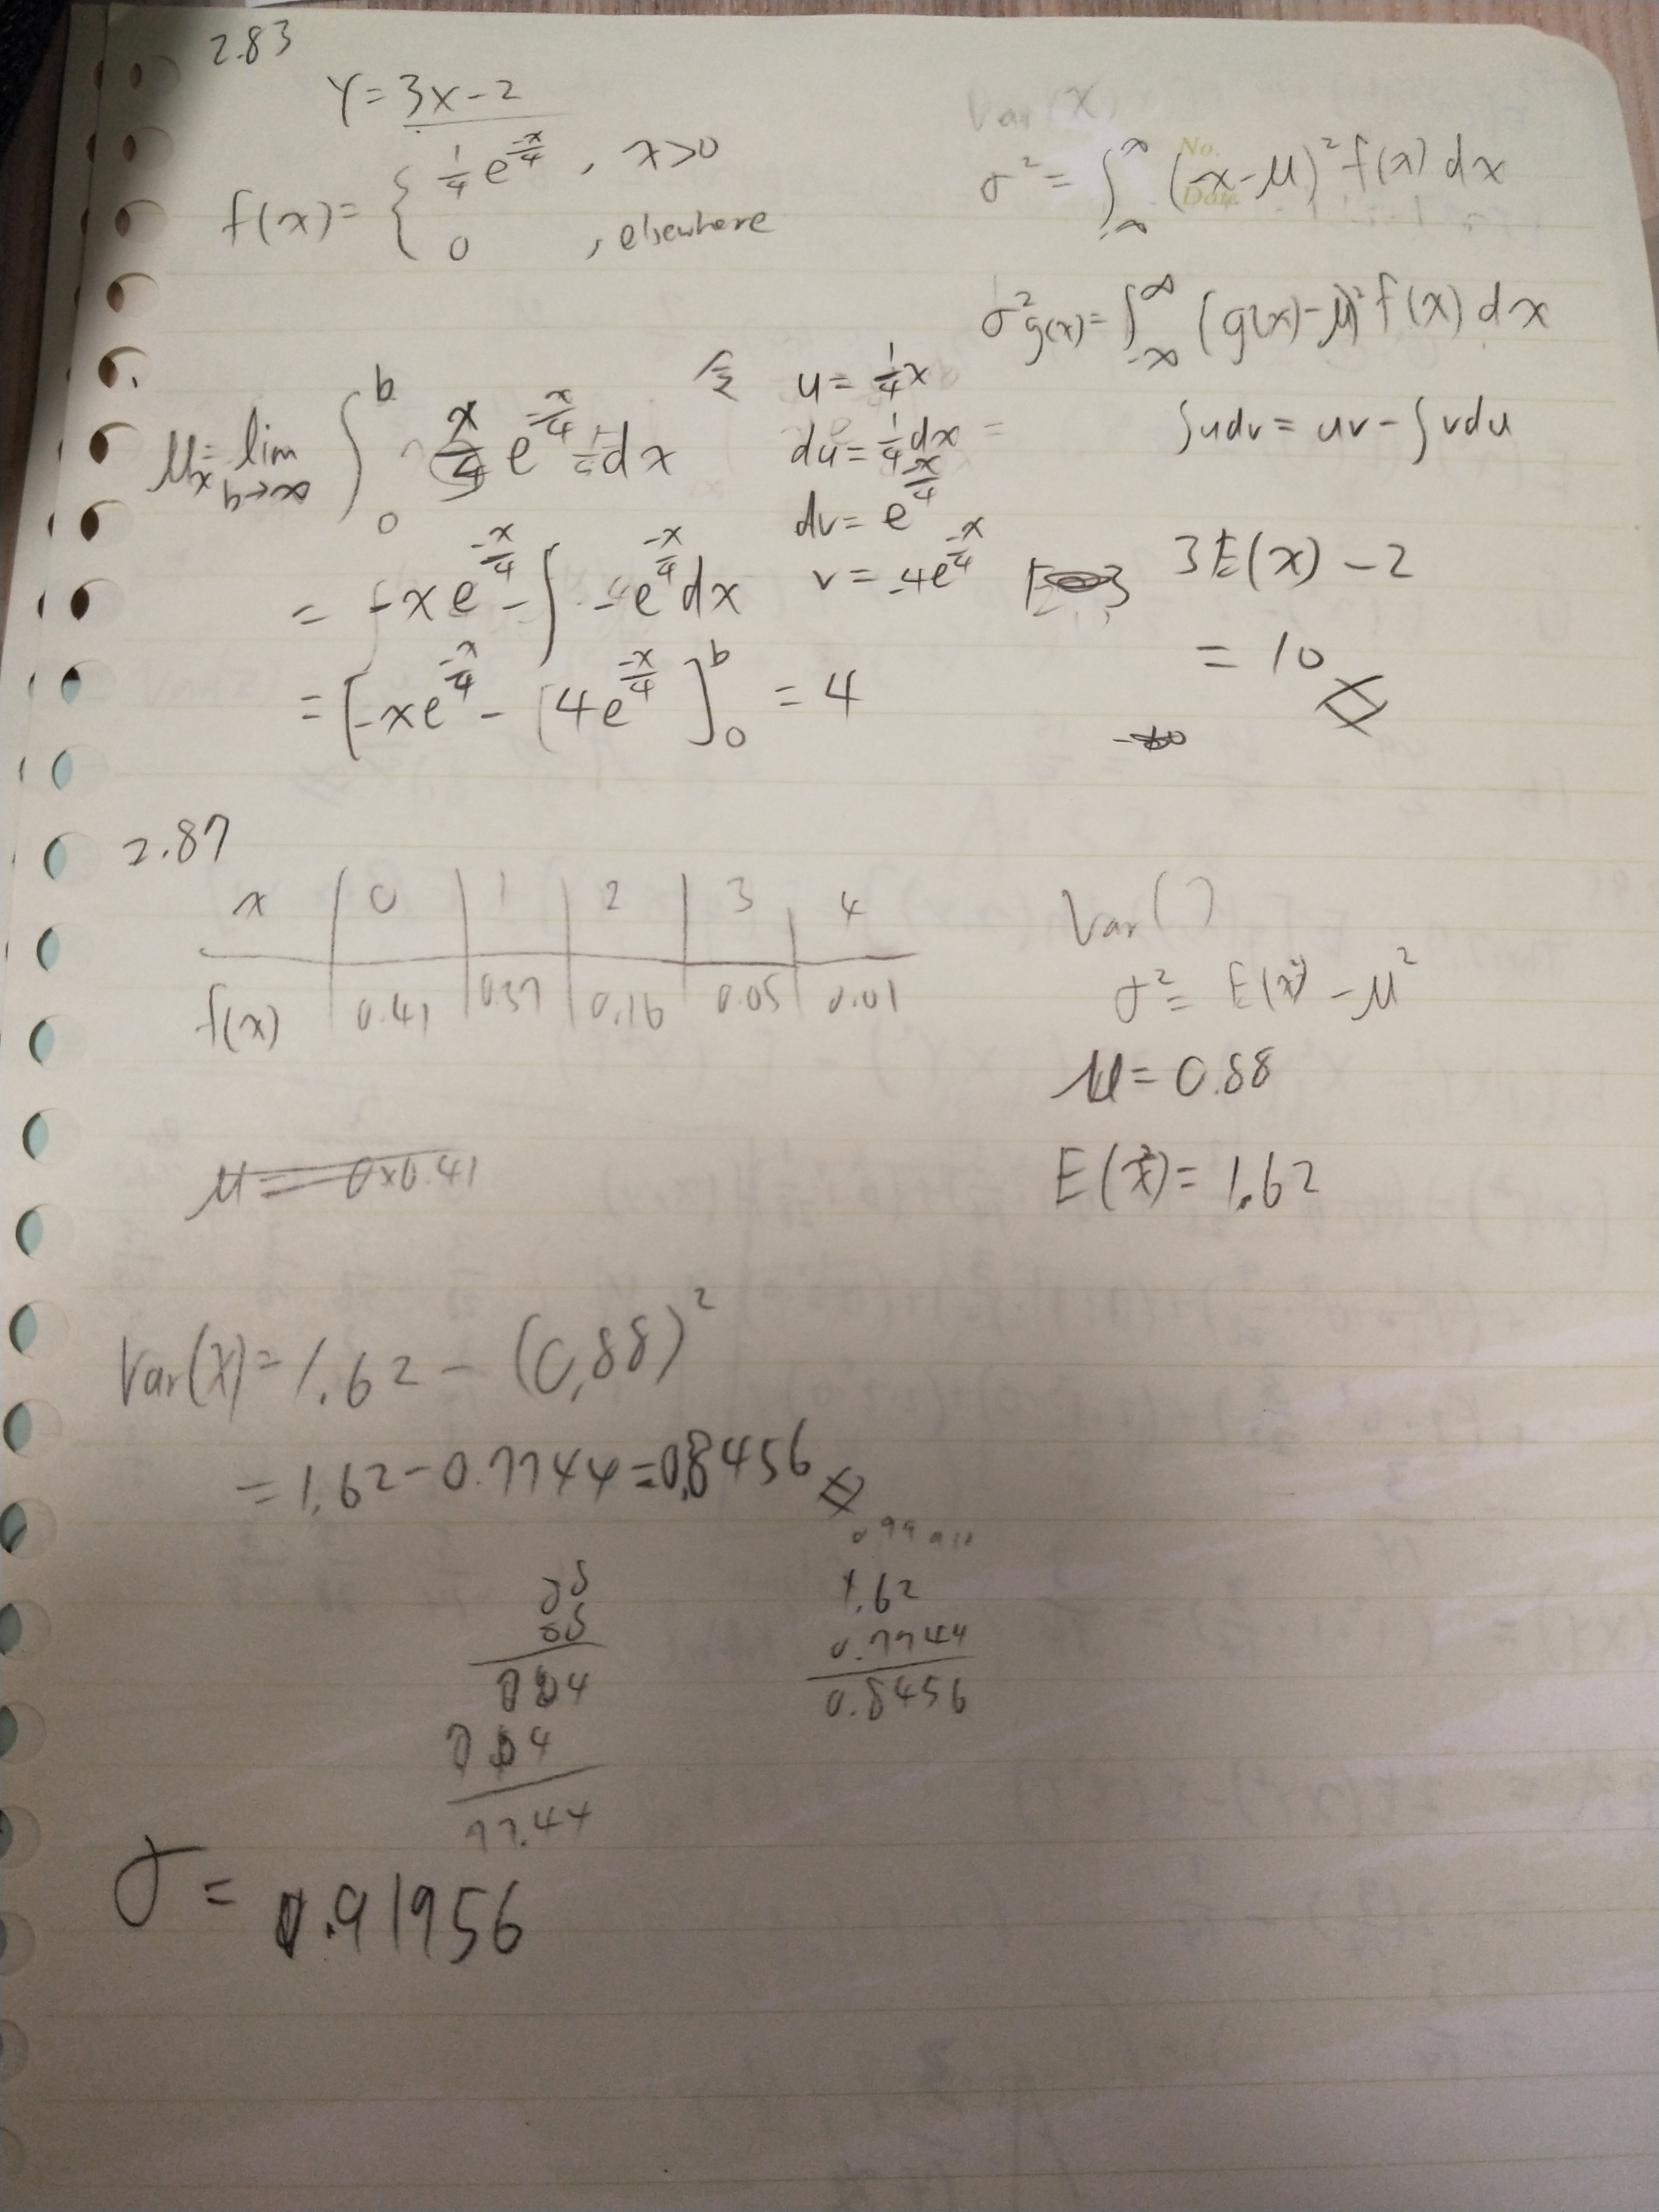 2.83
Y = 3x - 2
f(x) = { 1/4 e^(-x/4) , x>0
0 , elsewhere
Var(X)
No.
Date
σ² = ∫_{-∞}^{∞} (x-μ)² f(x) dx
σ²g(x) = ∫_{-∞}^{∞} (g(x)-μ)² f(x) dx
μx = lim b→∞ ∫_0^b x/4 e^(-x/4) dx
令 u = 1/4 x
du = 1/4 dx
dv = e^(-x/4)
v = -4e^(-x/4)
∫udv = uv - ∫vdu
= -xe^(-x/4) - ∫ -e^(-x/4) dx
= [-xe^(-x/4) - (4e^(-x/4) ]_0^b = 4
3E(x) - 2
= 10
2.87
x | 0 | 1 | 2 | 3 | 4
f(x) | 0.41 | 0.37 | 0.16 | 0.05 | 0.01
μ = 0×0.41
Var( )
σ² = E(x²) - μ²
μ = 0.88
E(x²) = 1.62
Var(X) = 1.62 - (0.88)²
= 1.62 - 0.7744 = 0.8456
88
88
704
704
77.44
1.62
0.7744
0.8456
σ = 0.91956